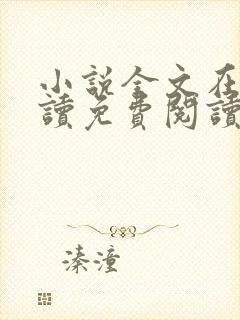 小說全文在
讀免費閱讀
溱潼